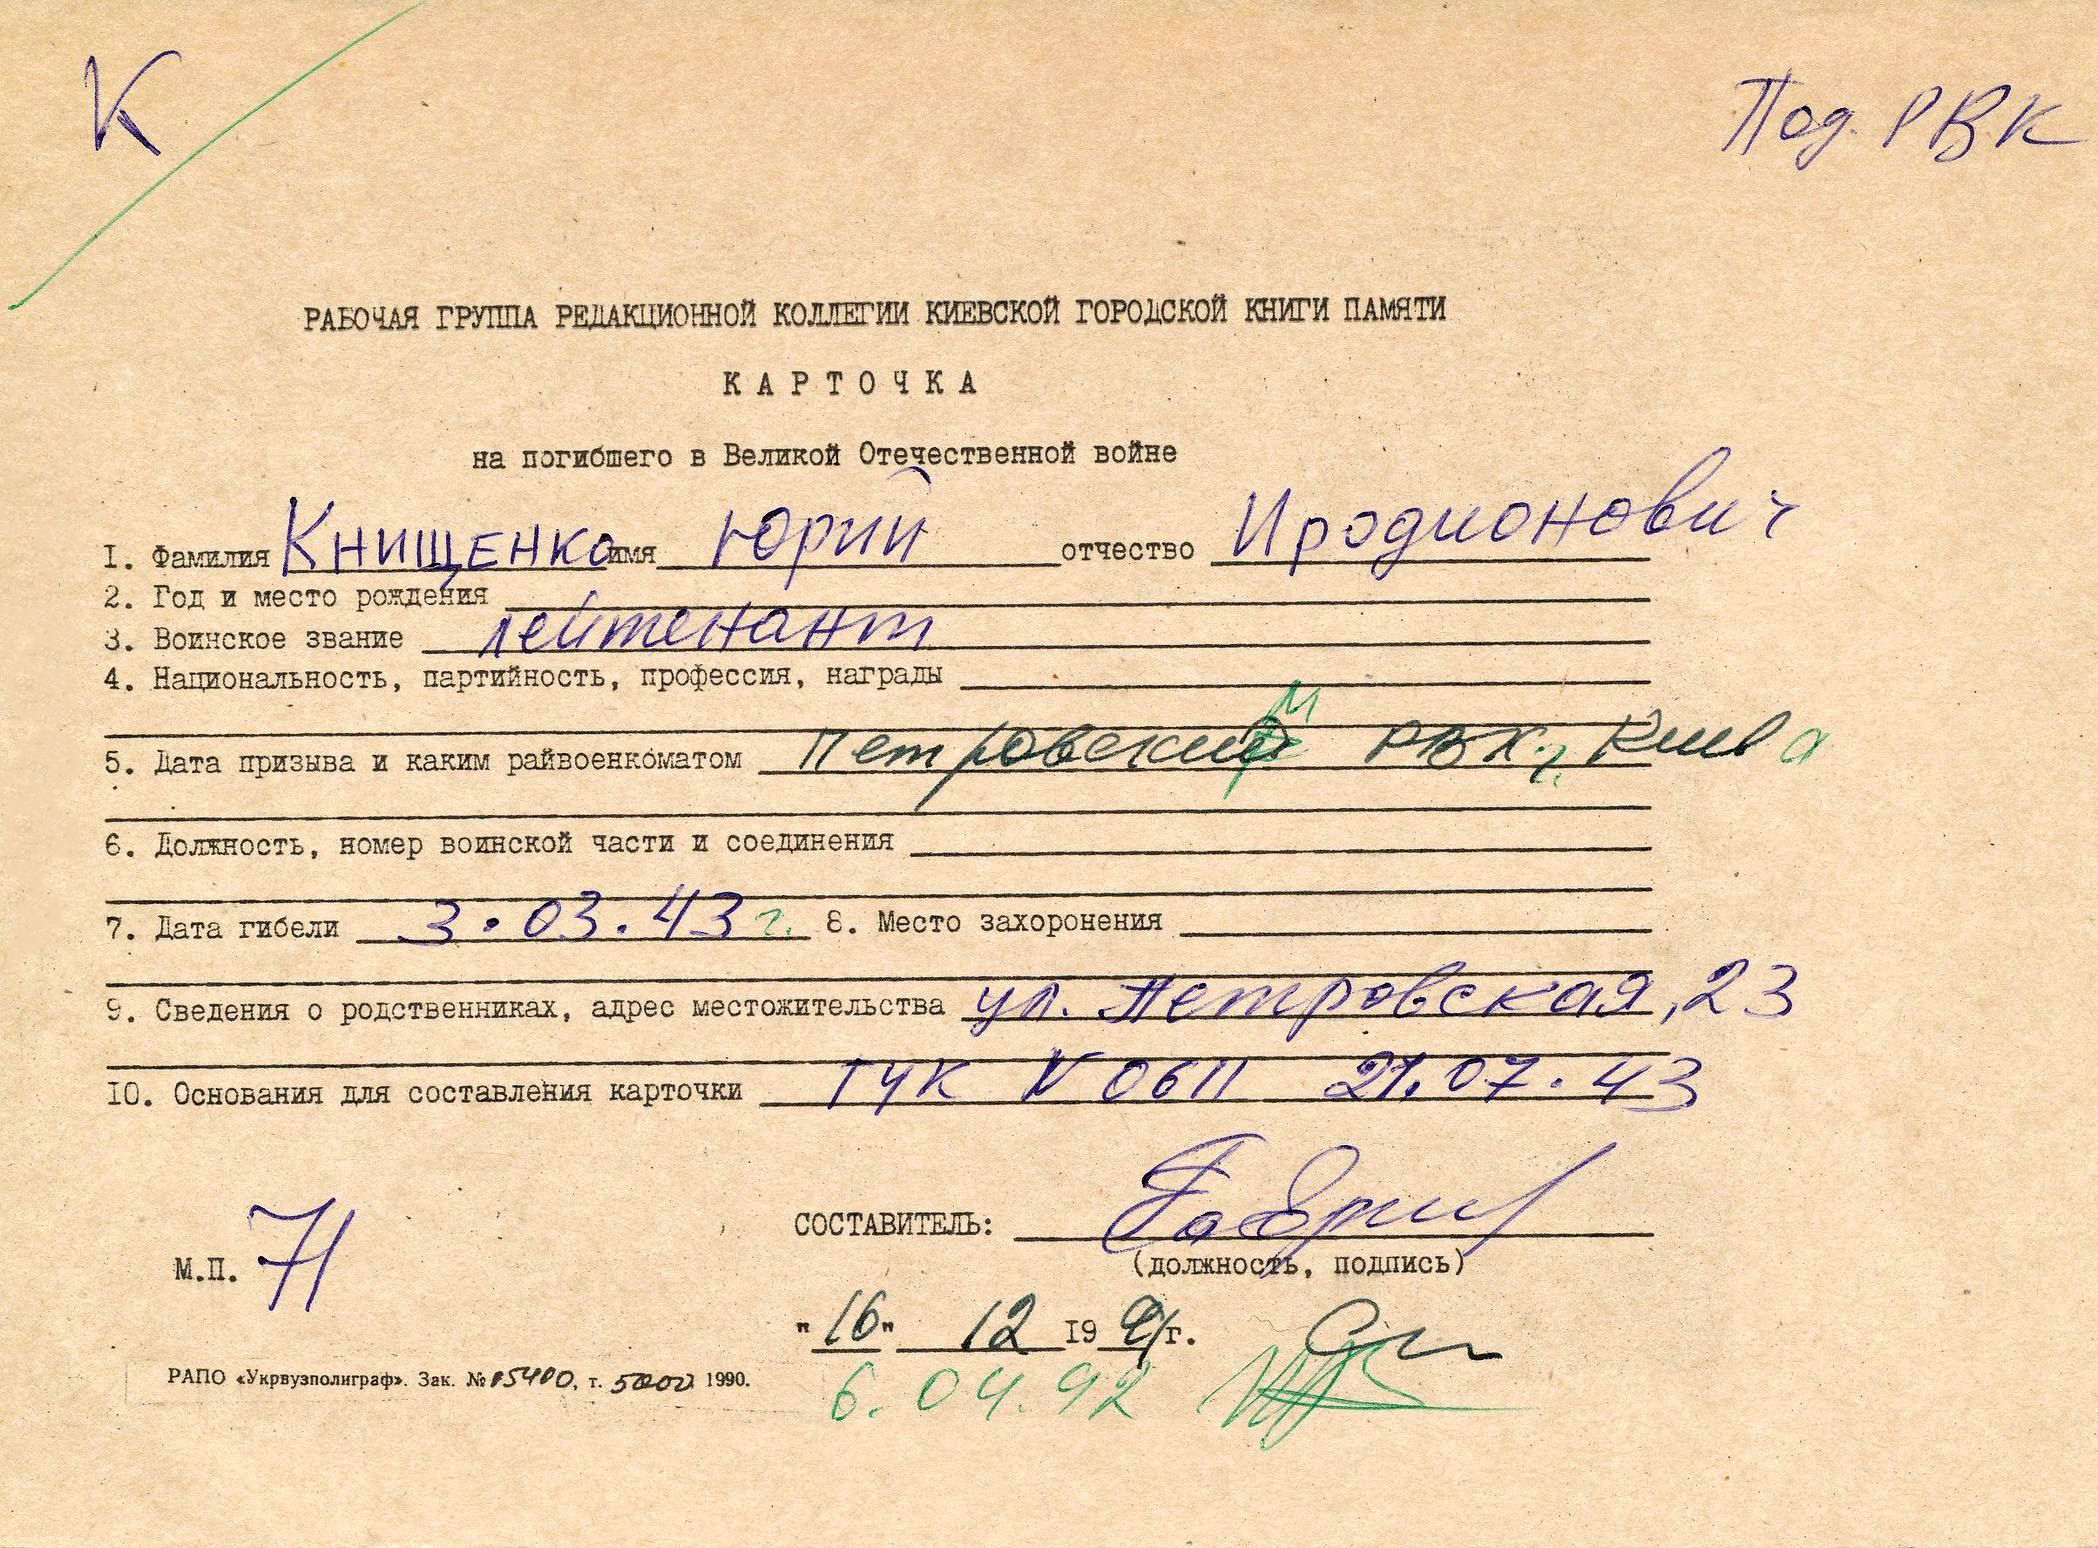 К
Под. РВК
РАБОЧАЯ ГРУППА РЕДАКЦИОННОЙ КОЛЛЕГИИ КИЕВСКОЙ ГОРОДСКОЙ КНИГИ ПАМЯТИ
КАРТОЧКА
на погибшего в Великой Отечественной войне
1. Фамилия Книщенко имя Юрий отчество Иродионович
2. Год и место рождения
3. Воинское звание лейтенант
4. Национальность, партийность, профессия, награды
5. Дата призыва и каким райвоенкоматом Петровским РВК г. Киева
6. Должность, номер воинской части и соединения
7. Дата гибели 3.03.43 г. 8. Место захоронения
9. Сведения о родственниках, адрес местожительства ул. Петровская, 23
10. Основания для составления карточки ГУК N 0611 21.07.43
СОСТАВИТЕЛЬ:
(должность, подпись)
М.П. 71
"16" 12 1991г.
6.04.92
РАПО «Укрвузполиграф». Зак. № 05400, т. 5000 1990.